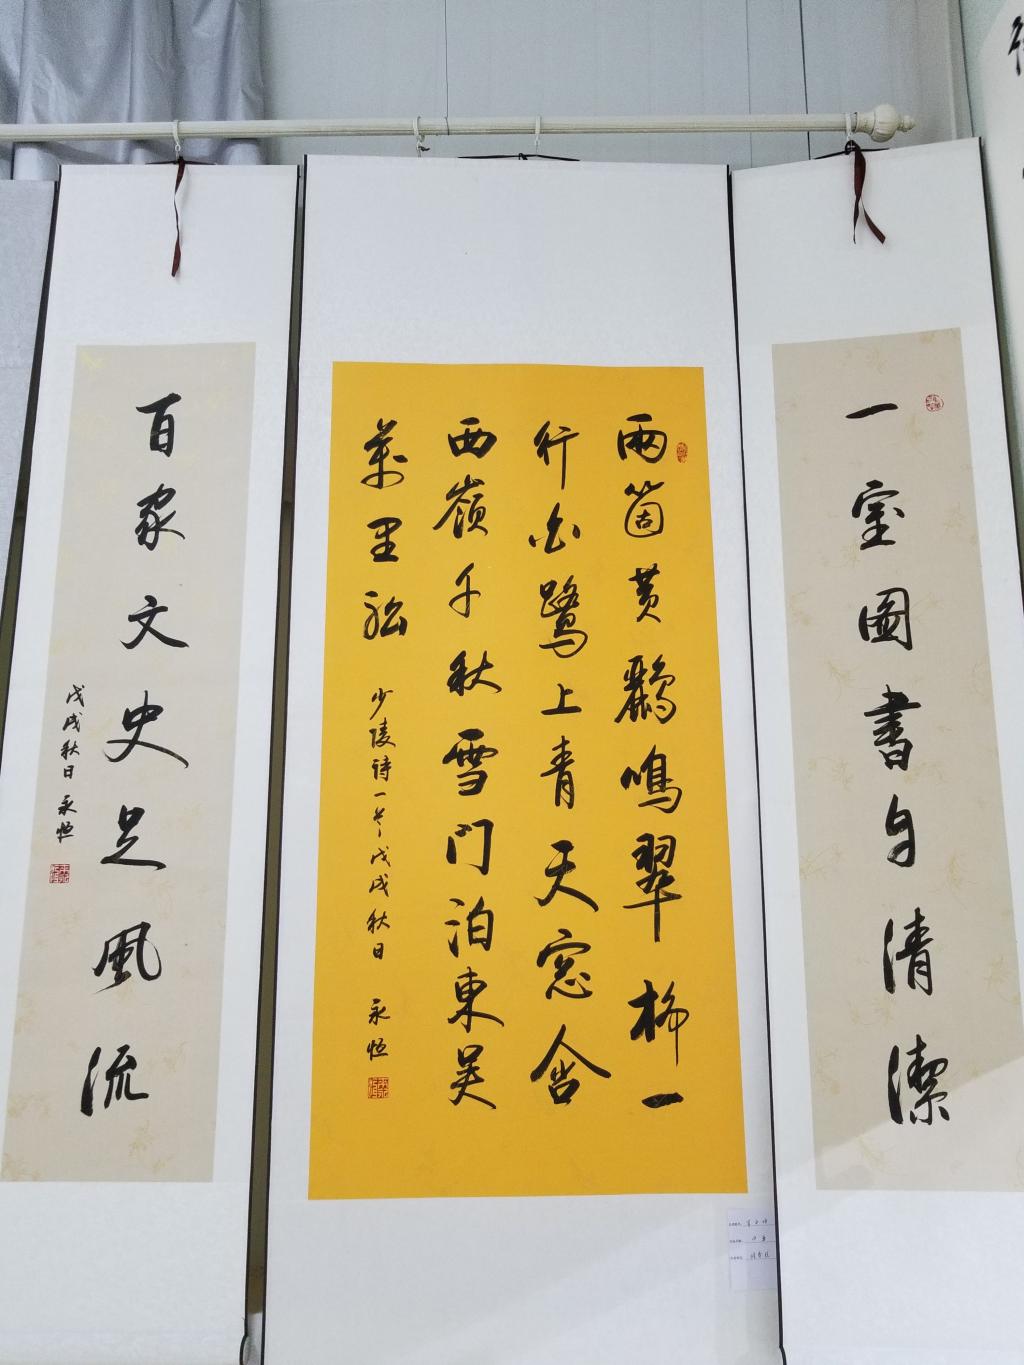 一室图書自清潔
兩箇黄鸝鳴翠柳一
行白鷺上青天窓含
西嶺千秋雪門泊東吴
萬里船
少陵诗一首戊戌秋日 永恒
百家文史足風流
戊戌秋日 永恒